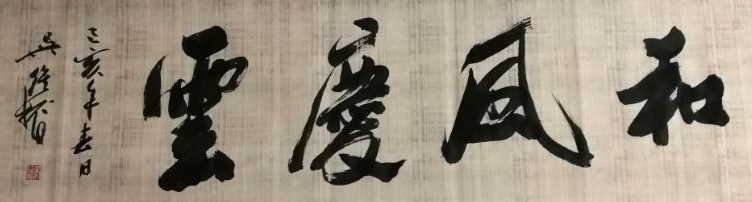 和风慶雲
己亥年春日